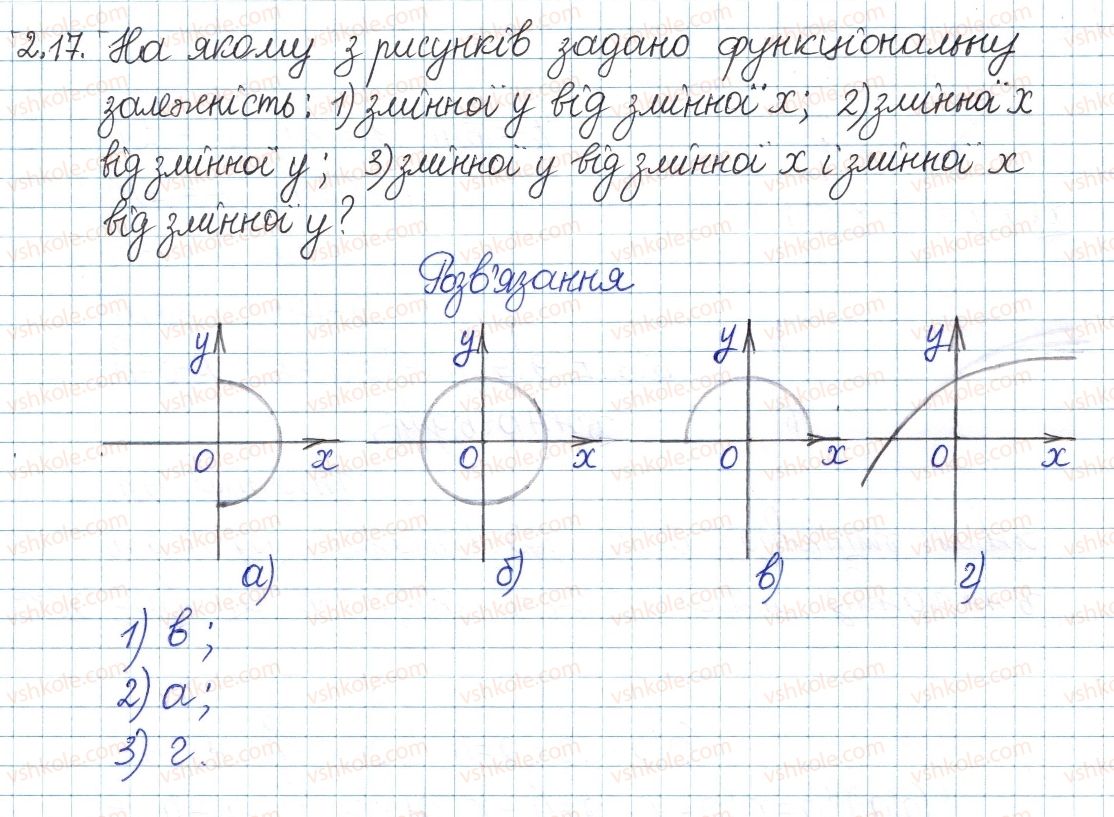 2.17. На якому з рисунків задано функціональну
залежність: 1) змінної у від змінної х; 2) змінної х
від змінної у; 3) змінної у від змінної х і змінної х
від змінної у?
Розв'язання
у у у у
0 х 0 х 0 х 0 х
а) б) в) г)
1) в;
2) а;
3) г.
vshkole.com